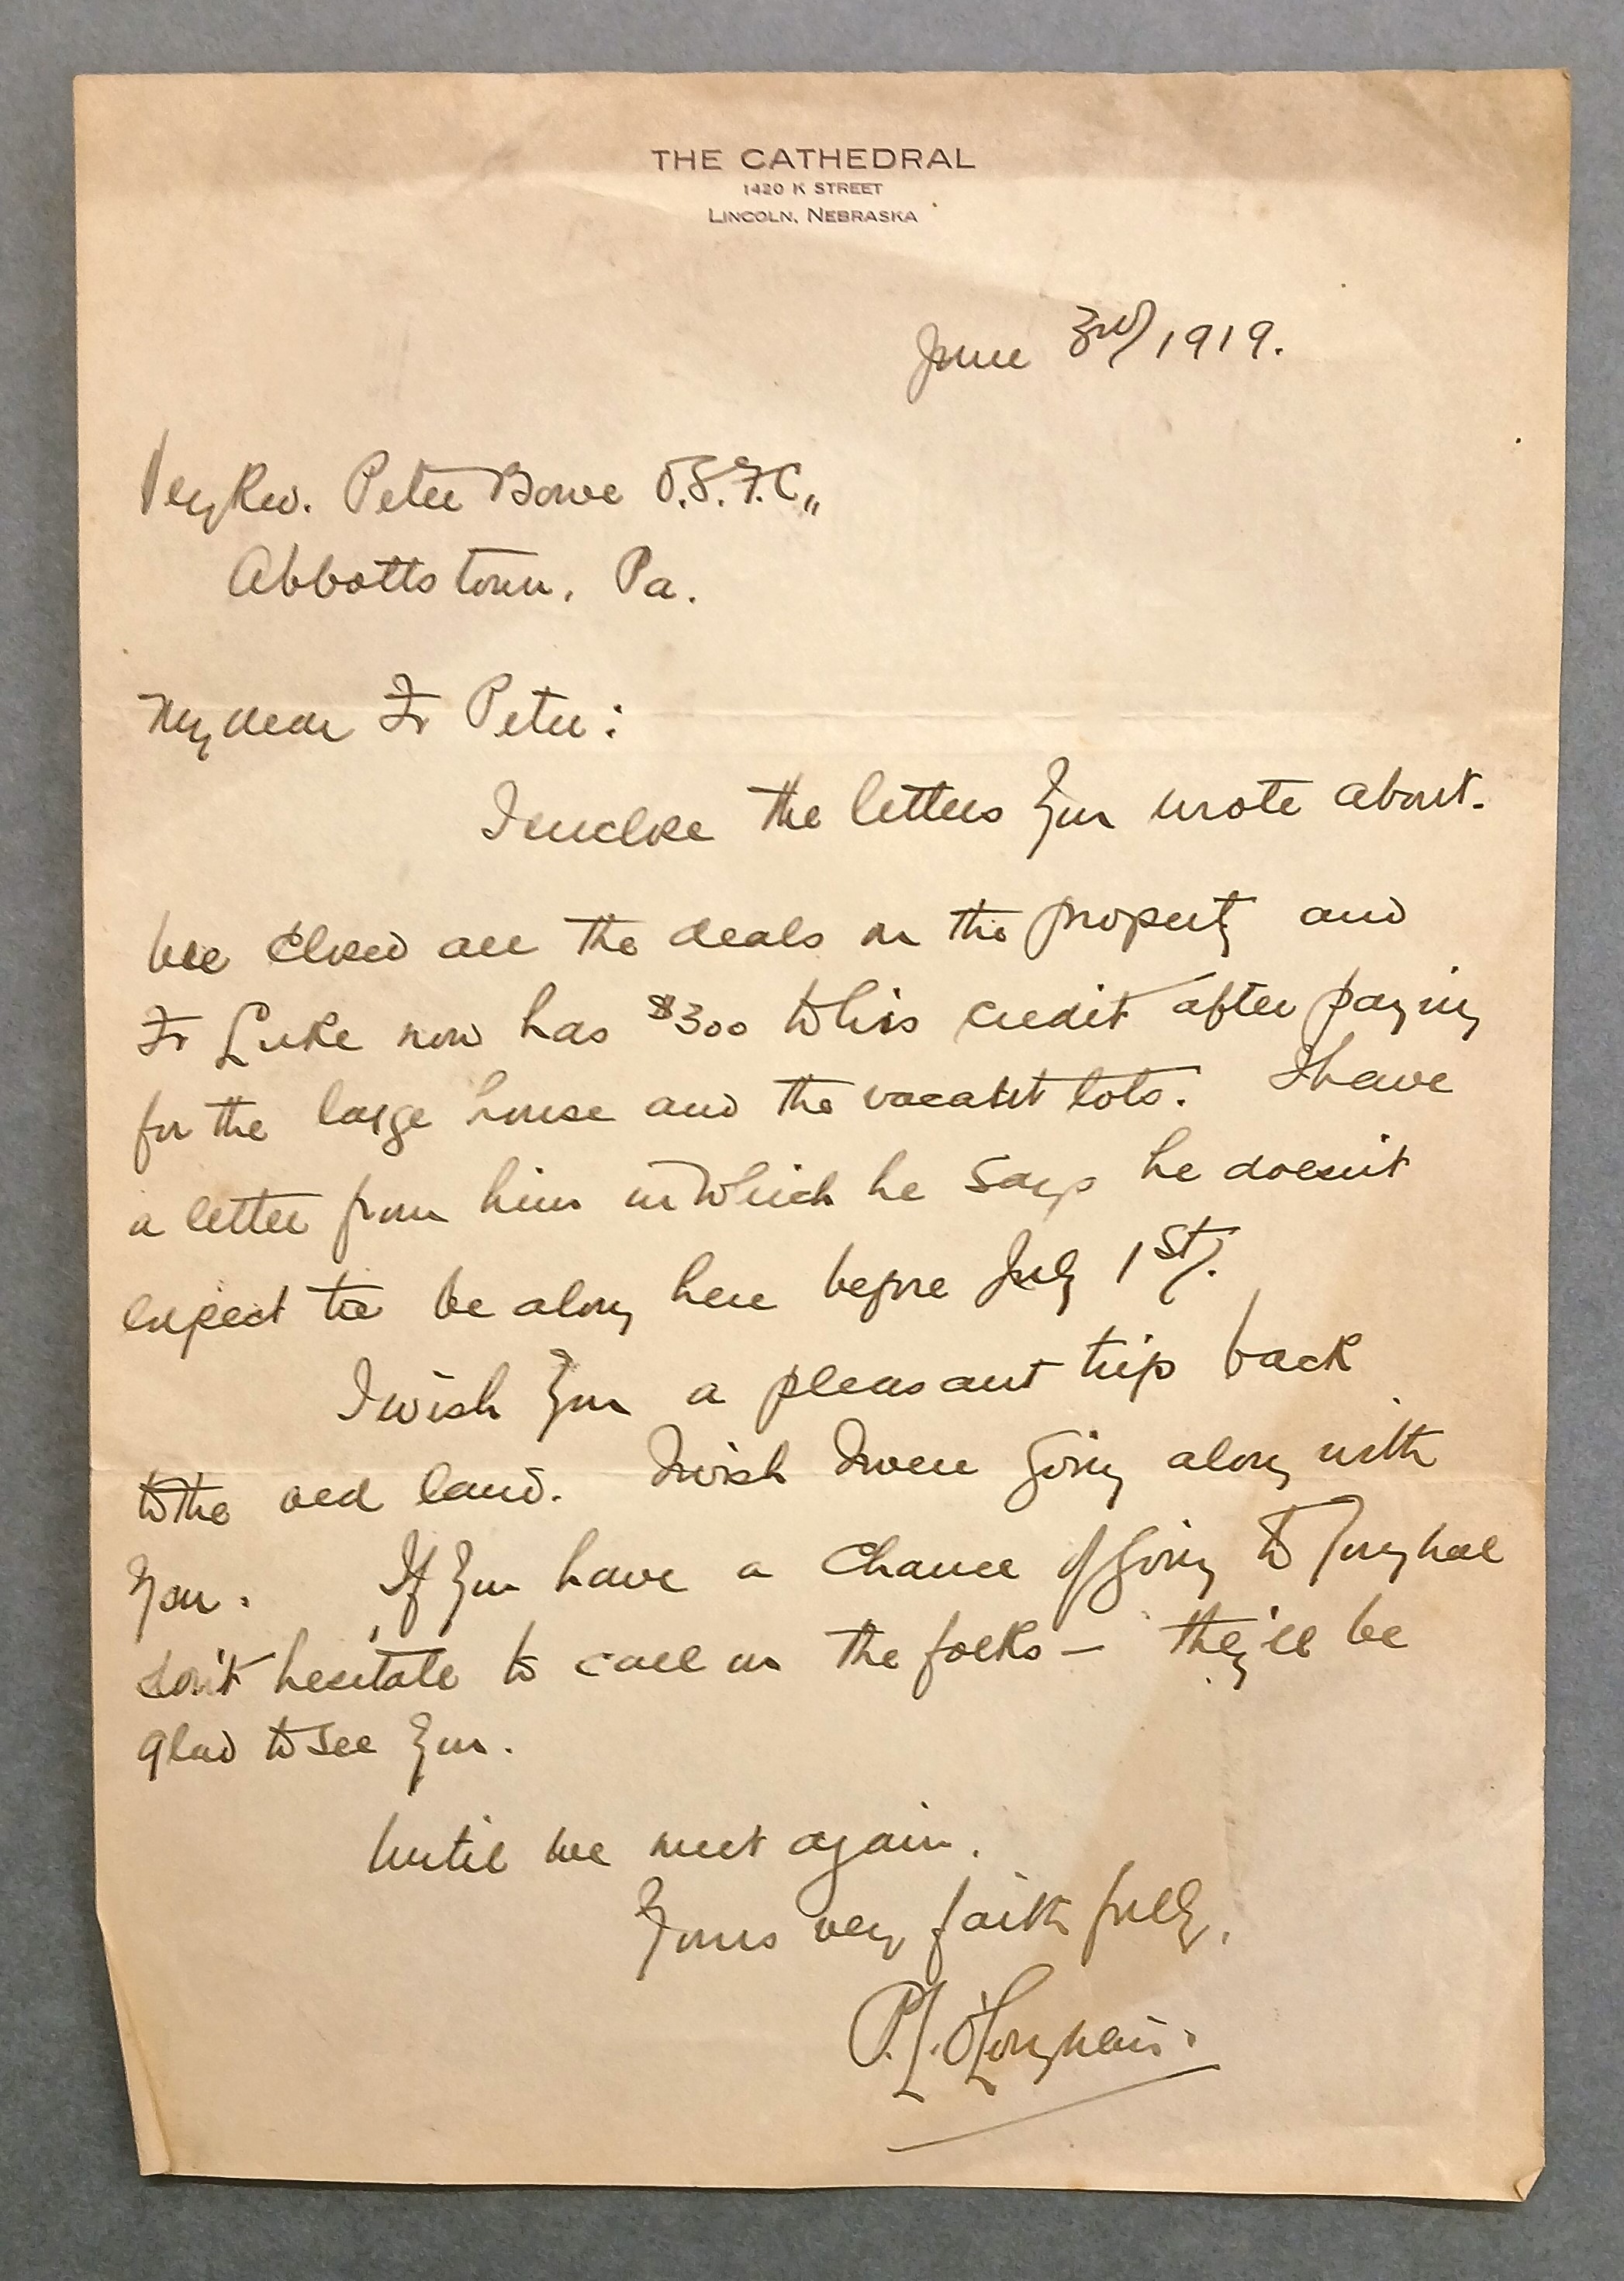 THE CATHEDRAL
1420 K STREET
LINCOLN, NEBRASKA
June 3rd/1919.
Very Rev. Peter Bowe O.S.F.C.,
Abbottstown, Pa.
My dear Fr Peter:
I enclose the letters you wrote about.
We closed all the deals on the property and
Fr Luke now has $300 to his credit after paying
for the large house and the vacant lots. I have
a letter from him in which he says he doesn't
expect to be along here before July 1st/.
I wish you a pleasant trip back
to the old land. I wish I were going along with
you. If you have a chance of going to Youghal
don't hesitate to call on the folks — they'll be
glad to see you.
Until we meet again.
Yours very faithfully,
P.L. O'Loughlin.